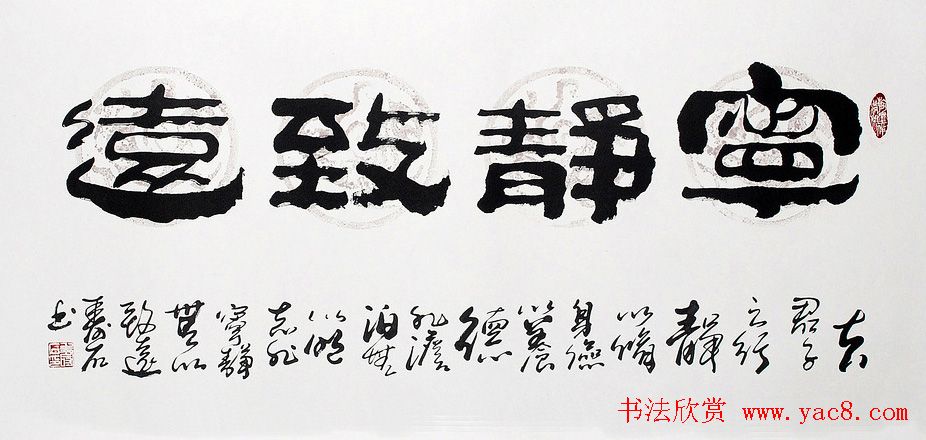 寧靜致遠
夫
君子
之行
靜
以脩
身儉
以養
德
非澹
泊無
以明
志非
寧靜
無以
致遠
书
书法欣赏 www.yac8.com